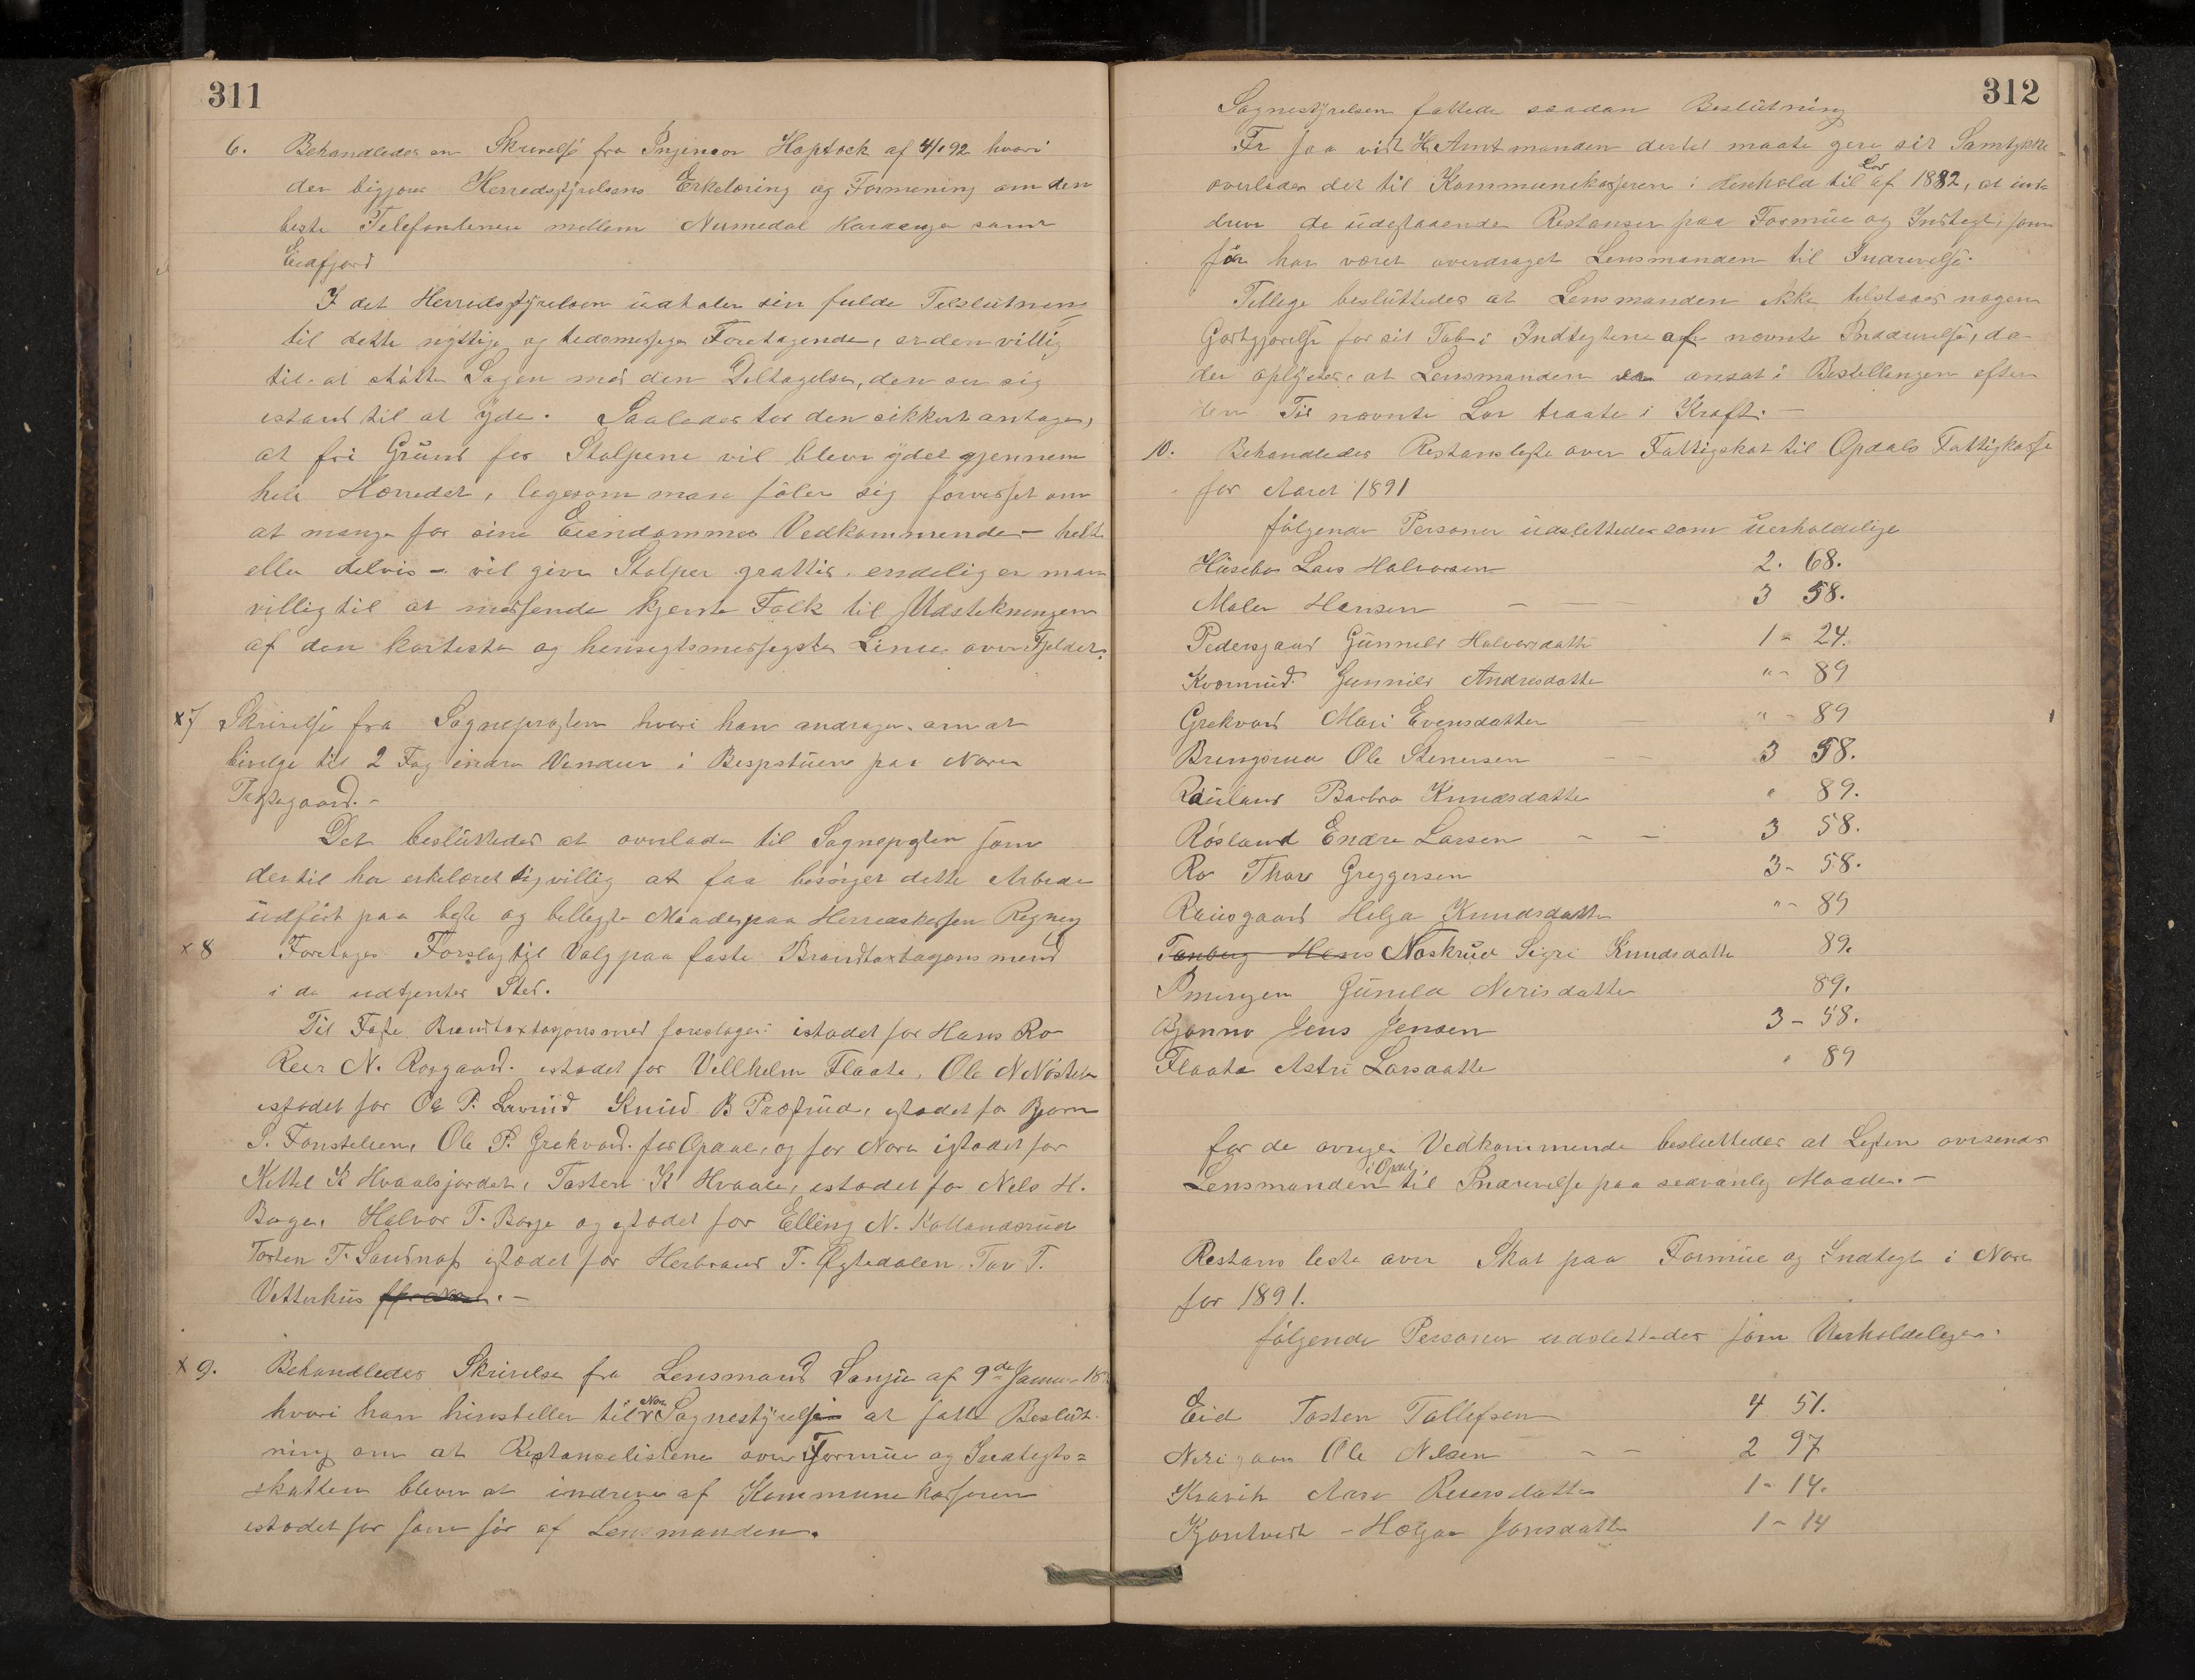 311
6. Behandledes en Skrivelse fra Ingeniør Hoptock af 4/1 92 hvori
der bigjæres Herredsstyrelsens Erkelæring og Formening om den
beste Telefonlenie mellem Numedal Hardanger samt
Eidfjord
I det Herredsstyrelsen üdtaler sin fulde Telslutning
til dette nyttige og tedsmessige Foretagende, er den villig
til at støtte Sagen med den Deltagelse, den ser sig
istand til at yde. Saaledes tør den sikkert antage,
at fri Gründ for Stolpene vil bleve ydet gjennem
hele Herredet, legesom man føler sig forvisset om
at mange for sine Eiendommes Vedkommende – helt
eller delvis – vil give Stolper grattis. endelig er man
villig til at medsende kjente Folk til Udstekningen
af den korteste og hensegtsmessegste Linie over Fjeldet.
x7 Skrivelse fra Sognepresten hvori han andrager om at
bevilge til 2 Fag indre Vinduer i Bespstüene paa Nore
Prestegaard. –
Det beslüttedes at overlade til Sognepresten som
dertil har erkelæret sig villig at faa besørget dette Arbeide
üdført paa beste og bellegste Maade paa Herredskassens Regning
x 8 Foretages Forslag til Valg paa faste Brandtaxtagonsmend
i de udtjentes Sted.
Til Faste Brandtaxtagonsmed foreslages: istadet for Hans Ro
Reer N. Rosgaard. istadet for Vellhelm Flaate, Ole N Nøsteba
istadet for Ole P. Livrüd Knüd B Prestrud, istadet for Bjørn
S. Fønstelien, Ole P. Grekvard. for Opdal, og for Nore istadet for
Kittel K Hvaalsjordet, Tosten K Hvaale, istadet for Nels H.
Bage, Halvor T. Borge og istadet for Elling N. Kollandsrud
Tosten T. Sandnap istadet for Herbrand T. Øgtedalen Tov T.
Vetterhüs . –
x 9. Behandledes Skrivelse fra Lensmand Sanjü af 9de Januar 18
hvori han hinsteller til Nore Sognestyrelse at fatte Beslüt-
ning om at Restanselistene over Formüe og Indtegts=
skatten blever at indrive af Kommunekasseren
istadet for som før af Lensmanden.
312
Sognestyrelsen fattede saadan Beslütning
For saa vidt Hr Amtmanden dertil maate give sit Samtykke
overlades det til Kommunekasjeren i Henhold til Lov af 1882, at ind-
drive de üdestaaende Restanser paa Formüe og Indtegt, som
før har været overdraget Lensmanden til Inddrivelse.
Tellige beslüttedes at Lensmanden ikke tilstaaes nogen
Godtgjørelse for sit Tab i Indtegtene af nevnte Inddrivelse, da
der oplyses, at Lensmanden er ansat i Bestellingen efter
den Tid nevnte Lov traate i Kraft. –
10. Behandledes Restansleste over Fattigskat til Opdals Fattigkasse
for Aaret 1891
følgende Personer üdslettedes som üerholdelige
Hüsebø Lars Halvorsen 2. 68.
Maler Hansen – – 3 58.
Pedersgaard Günnild Halvorsdatter 1 – 24.
Kvermüd. Gunnild Andresdatter " – 89
Grekvard Mari Evensdatter " – 89
Bringsrud Ole Stenersen – – 3 58.
Raüland Barbro Knudsdatter " 89.
Røsland Endre Larsen – – 3 58.
Ro Thore Greggersen 3 – 58.
Raüsgaard Helga Knudsdatter " – 89
Tonberg Hans Noskrud Sigri Knudsdatter 89.
Imingen Günild Nerisdatter 89.
Bjønno Jens Jensen 3 – 58.
Flaata Astri Larsdatter " 89
for de øvriges Vedkommende beslüttedes at Lesten oversendes
Lensmanden i Opdal, til Inddrivelse paa sedvanlig Maade. –
Restans leste over Skat paa Formüe og Indtegt i Nore
for 1891.
følgende Personer udslettedes som Uerholdelige:
Eid Tosten Tollefsen 4 51.
Nerigaard Ole Nilsen – – 2 97
Kravik Aaro Reiersdatter 1 – 14.
Kjøntvedt – Helga Jonsdatter 1 – 14